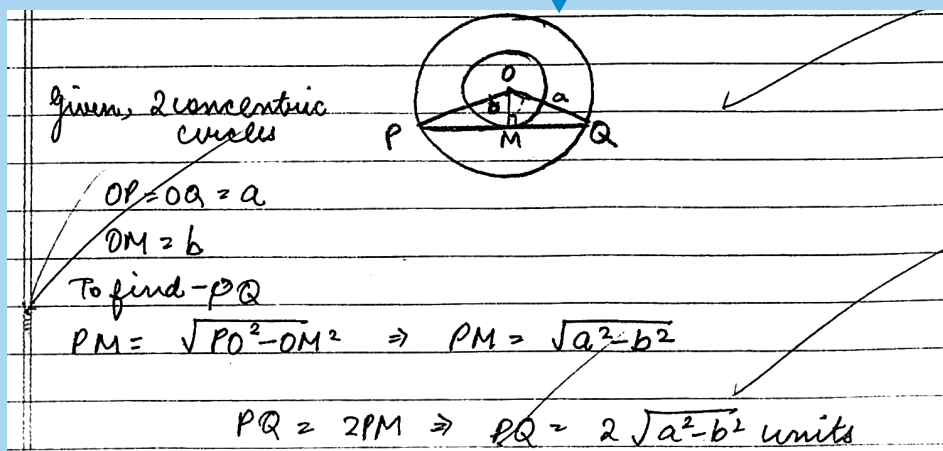 O
b a
P M Q
Given, 2 concentric
circles
OP = OQ = a
OM = b
To find - PQ
PM = √PO²-OM² ⇒ PM = √a²-b²
PQ = 2PM ⇒ PQ = 2√a²-b² units